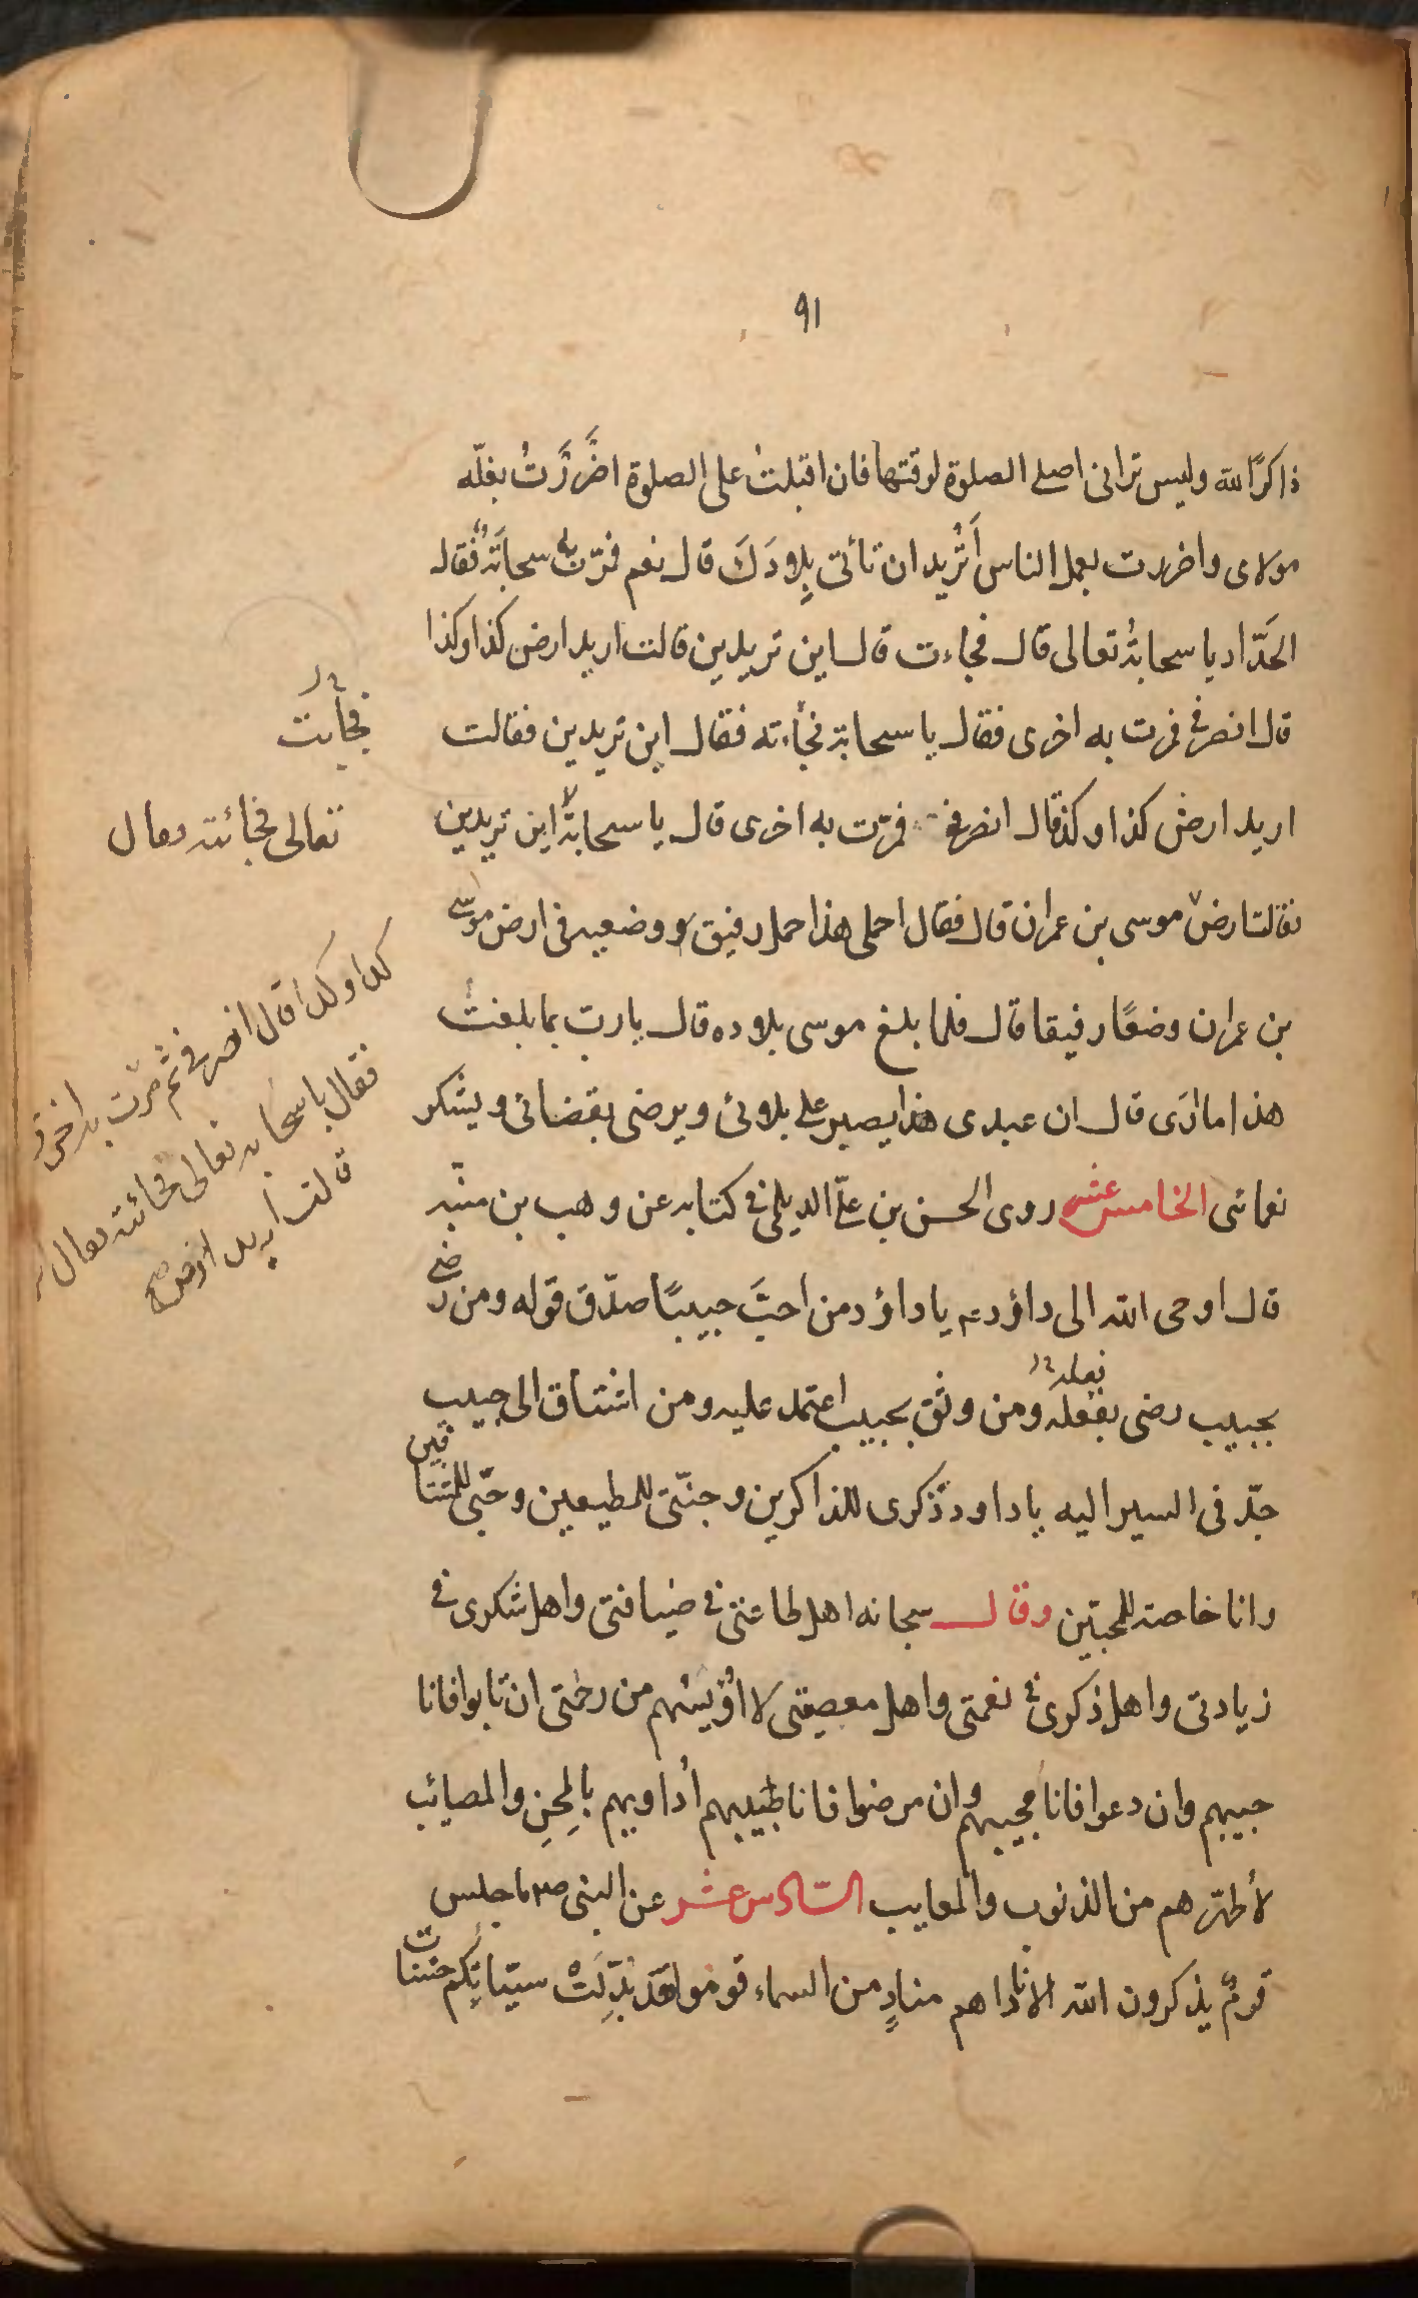 ٩١
ذاكرًا لله وليس ترانى اصلے الصلوة لوقتها فان اقبلتُ على الصلوة اضَّررْتُ بغلّه
مولاى واضررت بعمل الناس أتُريد ان تأتى بِلادَكَ قال نعم فمرّت به سحابَةٌ فقال
الحَدّاد يا سحابةُ تعالى قال فجاءت قال اين تريدين قالت اريد ارض كذا وكذا
قال انصرفى فمرت به اخرى فقال يا سحابة فجأءته فقال اين تريدين فقالت
اريد ارض كذا وكذا قال انصرفى فمرّت به اخرى قال يا سحابةُ اين تريدين
فقالت ارض موسى بن عمران قال فقال احملى هذا حمل رفيق و وضعيه فى ارض موسى
بن عمران وضعًا رفيقا قال فلما بلغ موسى بلاده قال يا رب بما بلغتُ
هذا ما ارَى قال ان عبدى هذا يصبر على بلائى ويرضى بقضائى ويشكر
نعمائى الخامس عشر روى الحسن بن علّے الديلمى فى كتابه عن وهب بن منبّه
قال اوحى الله الى داؤد ع يا داؤد من احبَّ حبيبًا صدّق قوله ومن رضى
بحبيب رضى بفعله ومن وثق بحبيب اعتمد عليه ومن اشتاق الى حبيب
جدّ فى السير اليه يا داود ذكرى للذاكرين وجنّتى للمطيعين وحبّى للمشتاقين
وانا خاصة للمحبّين وقال سبحانه اهل طاعتى فى ضيافتى واهل شكرى فى
زيادتى واهل ذكرى فى نعمتى واهل معصيتى لا اؤيسُهم من رحمتى ان تابوا فانا
حبيبهم وان دعوا فانا مجيبهم وان مرضوا فانا طبيبهم اُداويهم بالمِحَنِ والمصائب
لأطهّرهم من الذنوب والمعايب السّادس عشر عن النبى ص ما جلس
قومٌ يذكرون الله الا ناداهم منادٍ من السماء قوموا فقد بُدّلَتْ سيّئاتُكم حسنات
فجأت
تعالى فجائته فقال
كذا وكذا قال انصرفى ثم مرّت به اخرى
فقال يا سحابه تعالى فجائته فقال
قالت اريد ارض
بفعله